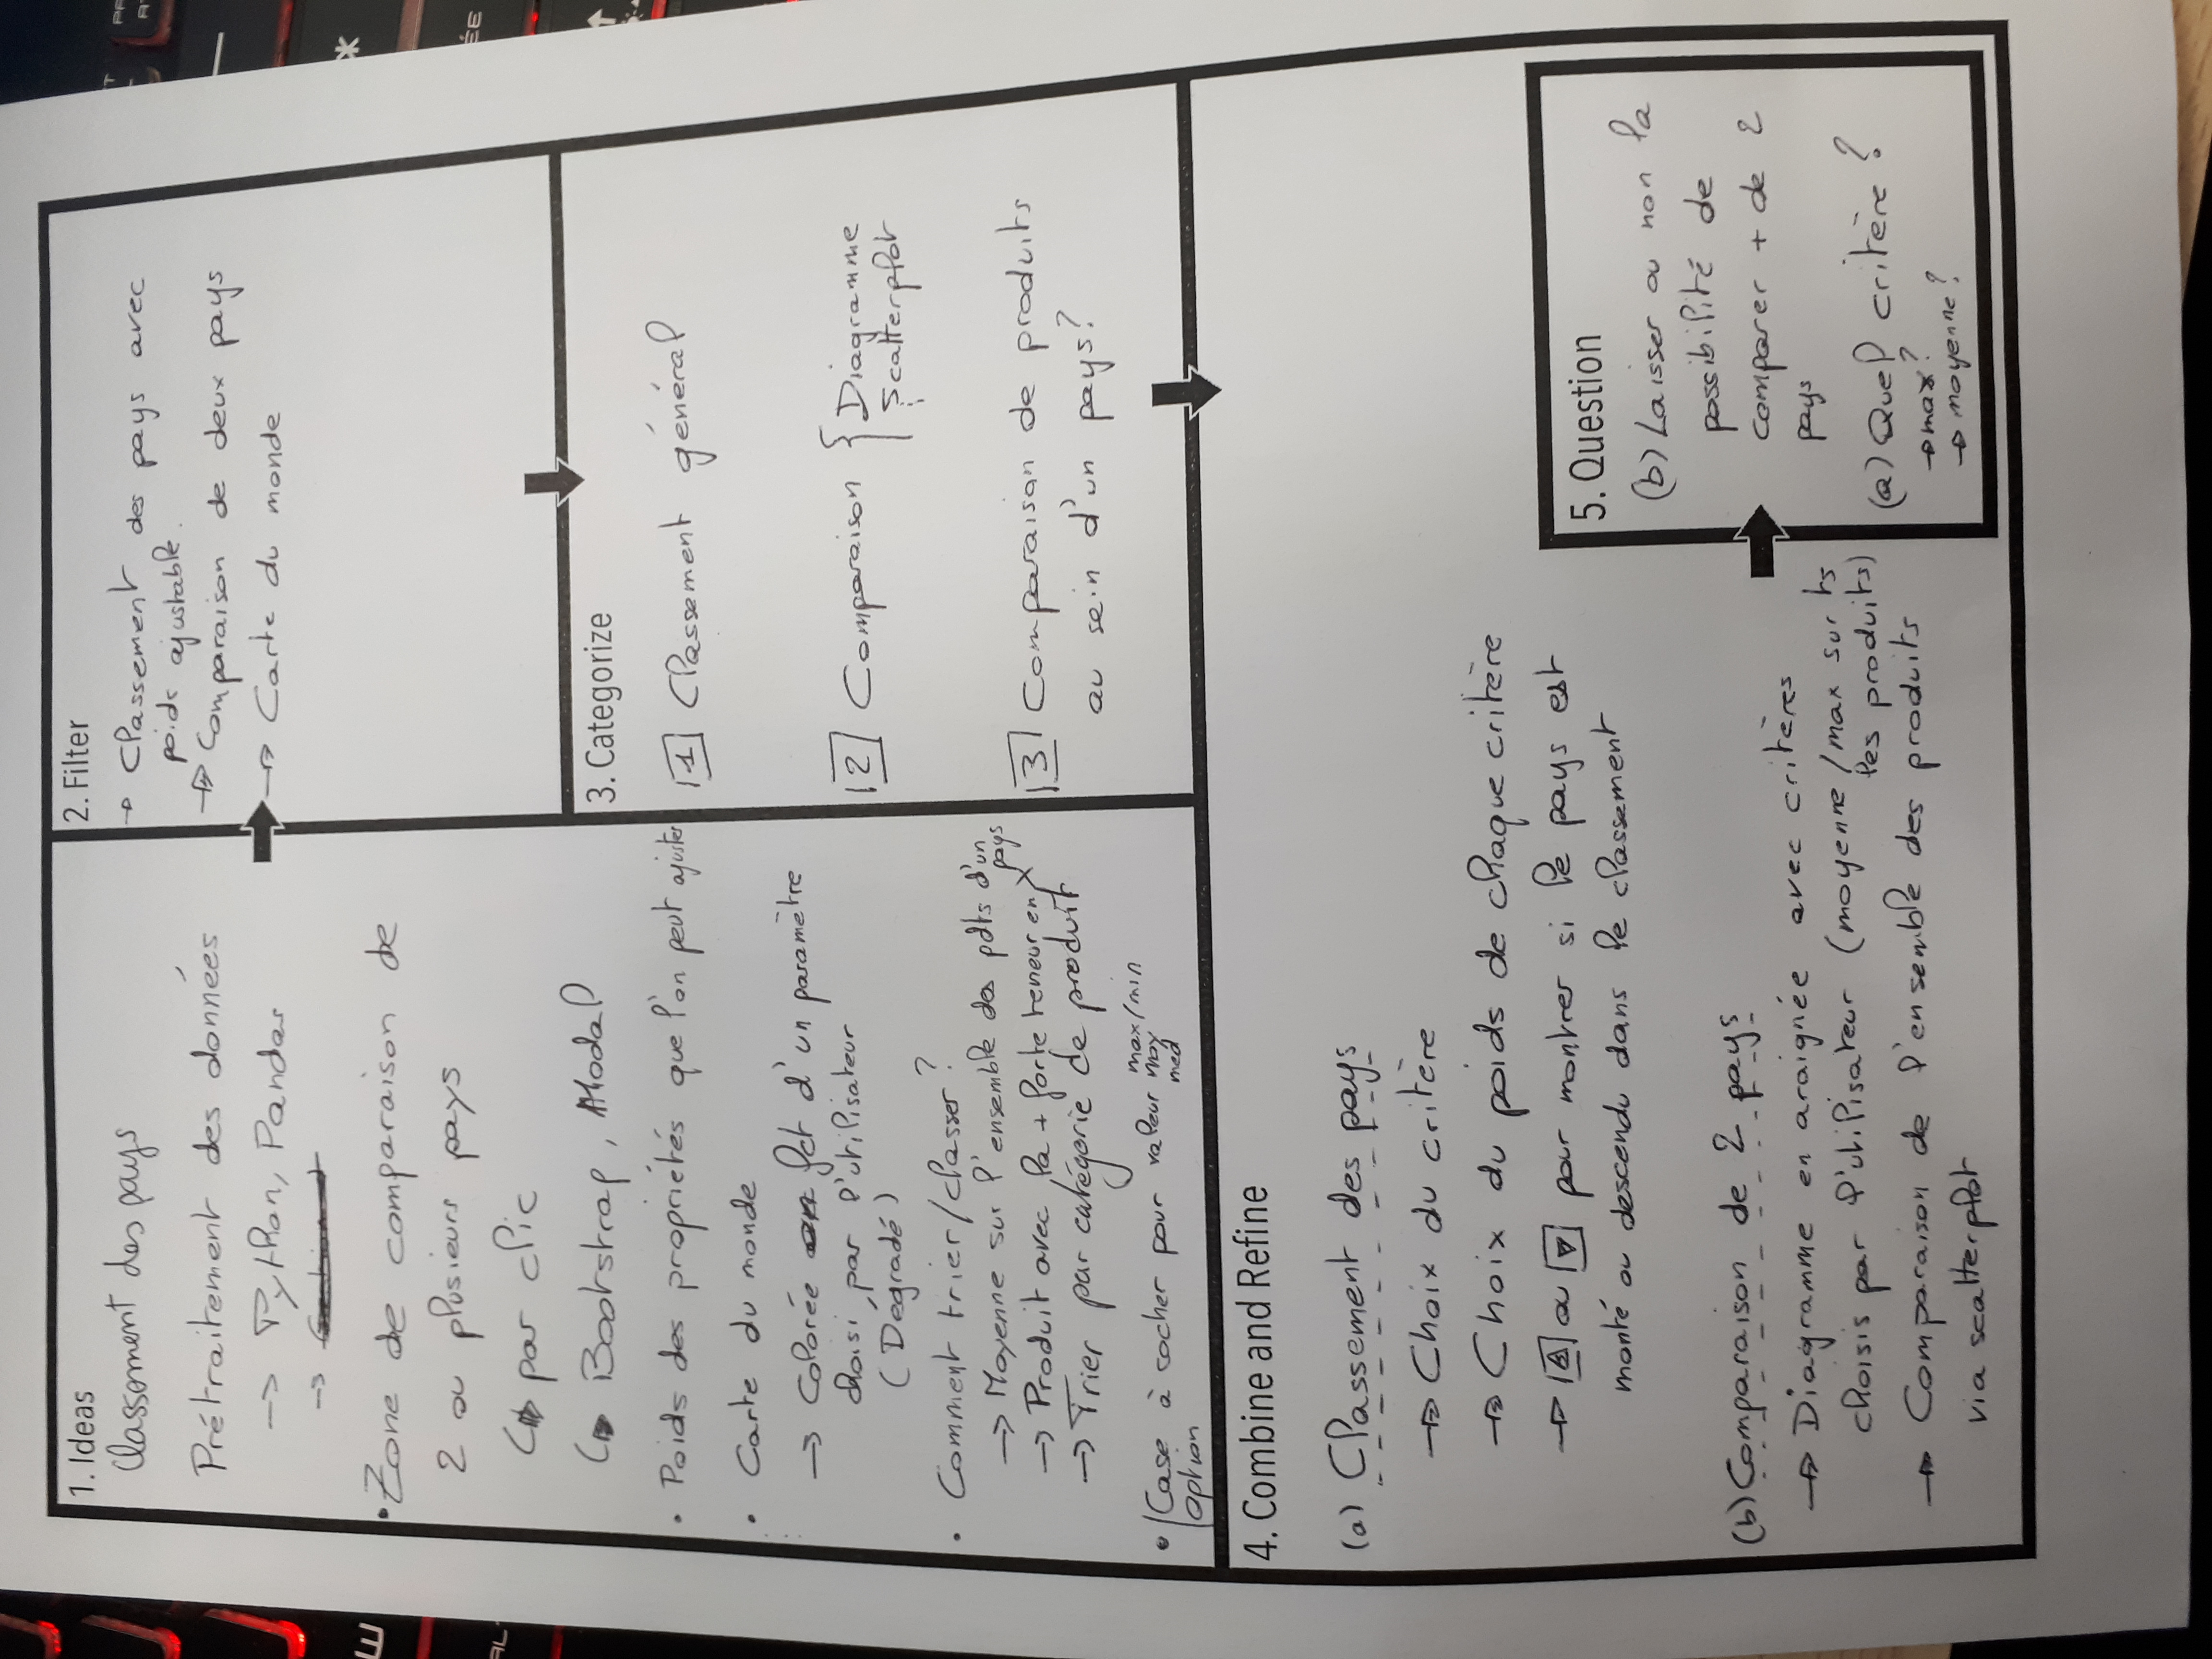 1. Ideas
Classement des pays
Prétraitement des données
→ Python, Pandas
→
• Zone de comparaison de
2 ou plusieurs pays
↳ par clic
↳ Bootstrap, Modal
• Poids des propriétés que l'on peut ajuster
• Carte du monde
→ Colorée en fct d'un paramètre
choisi par l'utilisateur
(Dégradé)
• Comment trier/classer ?
→ Moyenne sur l'ensemble des pdts d'un
pays
→ Produit avec la + forte teneur en X
→ Trier par catégorie de produit
max/min
• Case à cocher pour valeur moy
med
option
2. Filter
→ Classement des pays avec
poids ajustable.
→ Comparaison de deux pays
→ Carte du monde
3. Categorize
1 Classement général
2 Comparaison { Diagramme
Scatterplot
3 Comparaison de produits
au sein d'un pays?
4. Combine and Refine
(a) Classement des pays
→ Choix du critère
→ Choix du poids de chaque critère
→ ▲ ou ▼ pour montrer si le pays est
monté ou descendu dans le classement
(b) Comparaison de 2 pays
→ Diagramme en araignée avec critères
choisis par l'utilisateur (moyenne/max sur ts
les produits)
→ Comparaison de l'ensemble des produits
via scatterplot
5. Question
(b) Laisser ou non la
possibilité de
comparer + de 2
pays
(a) Quel critère ?
→ max?
→ moyenne?